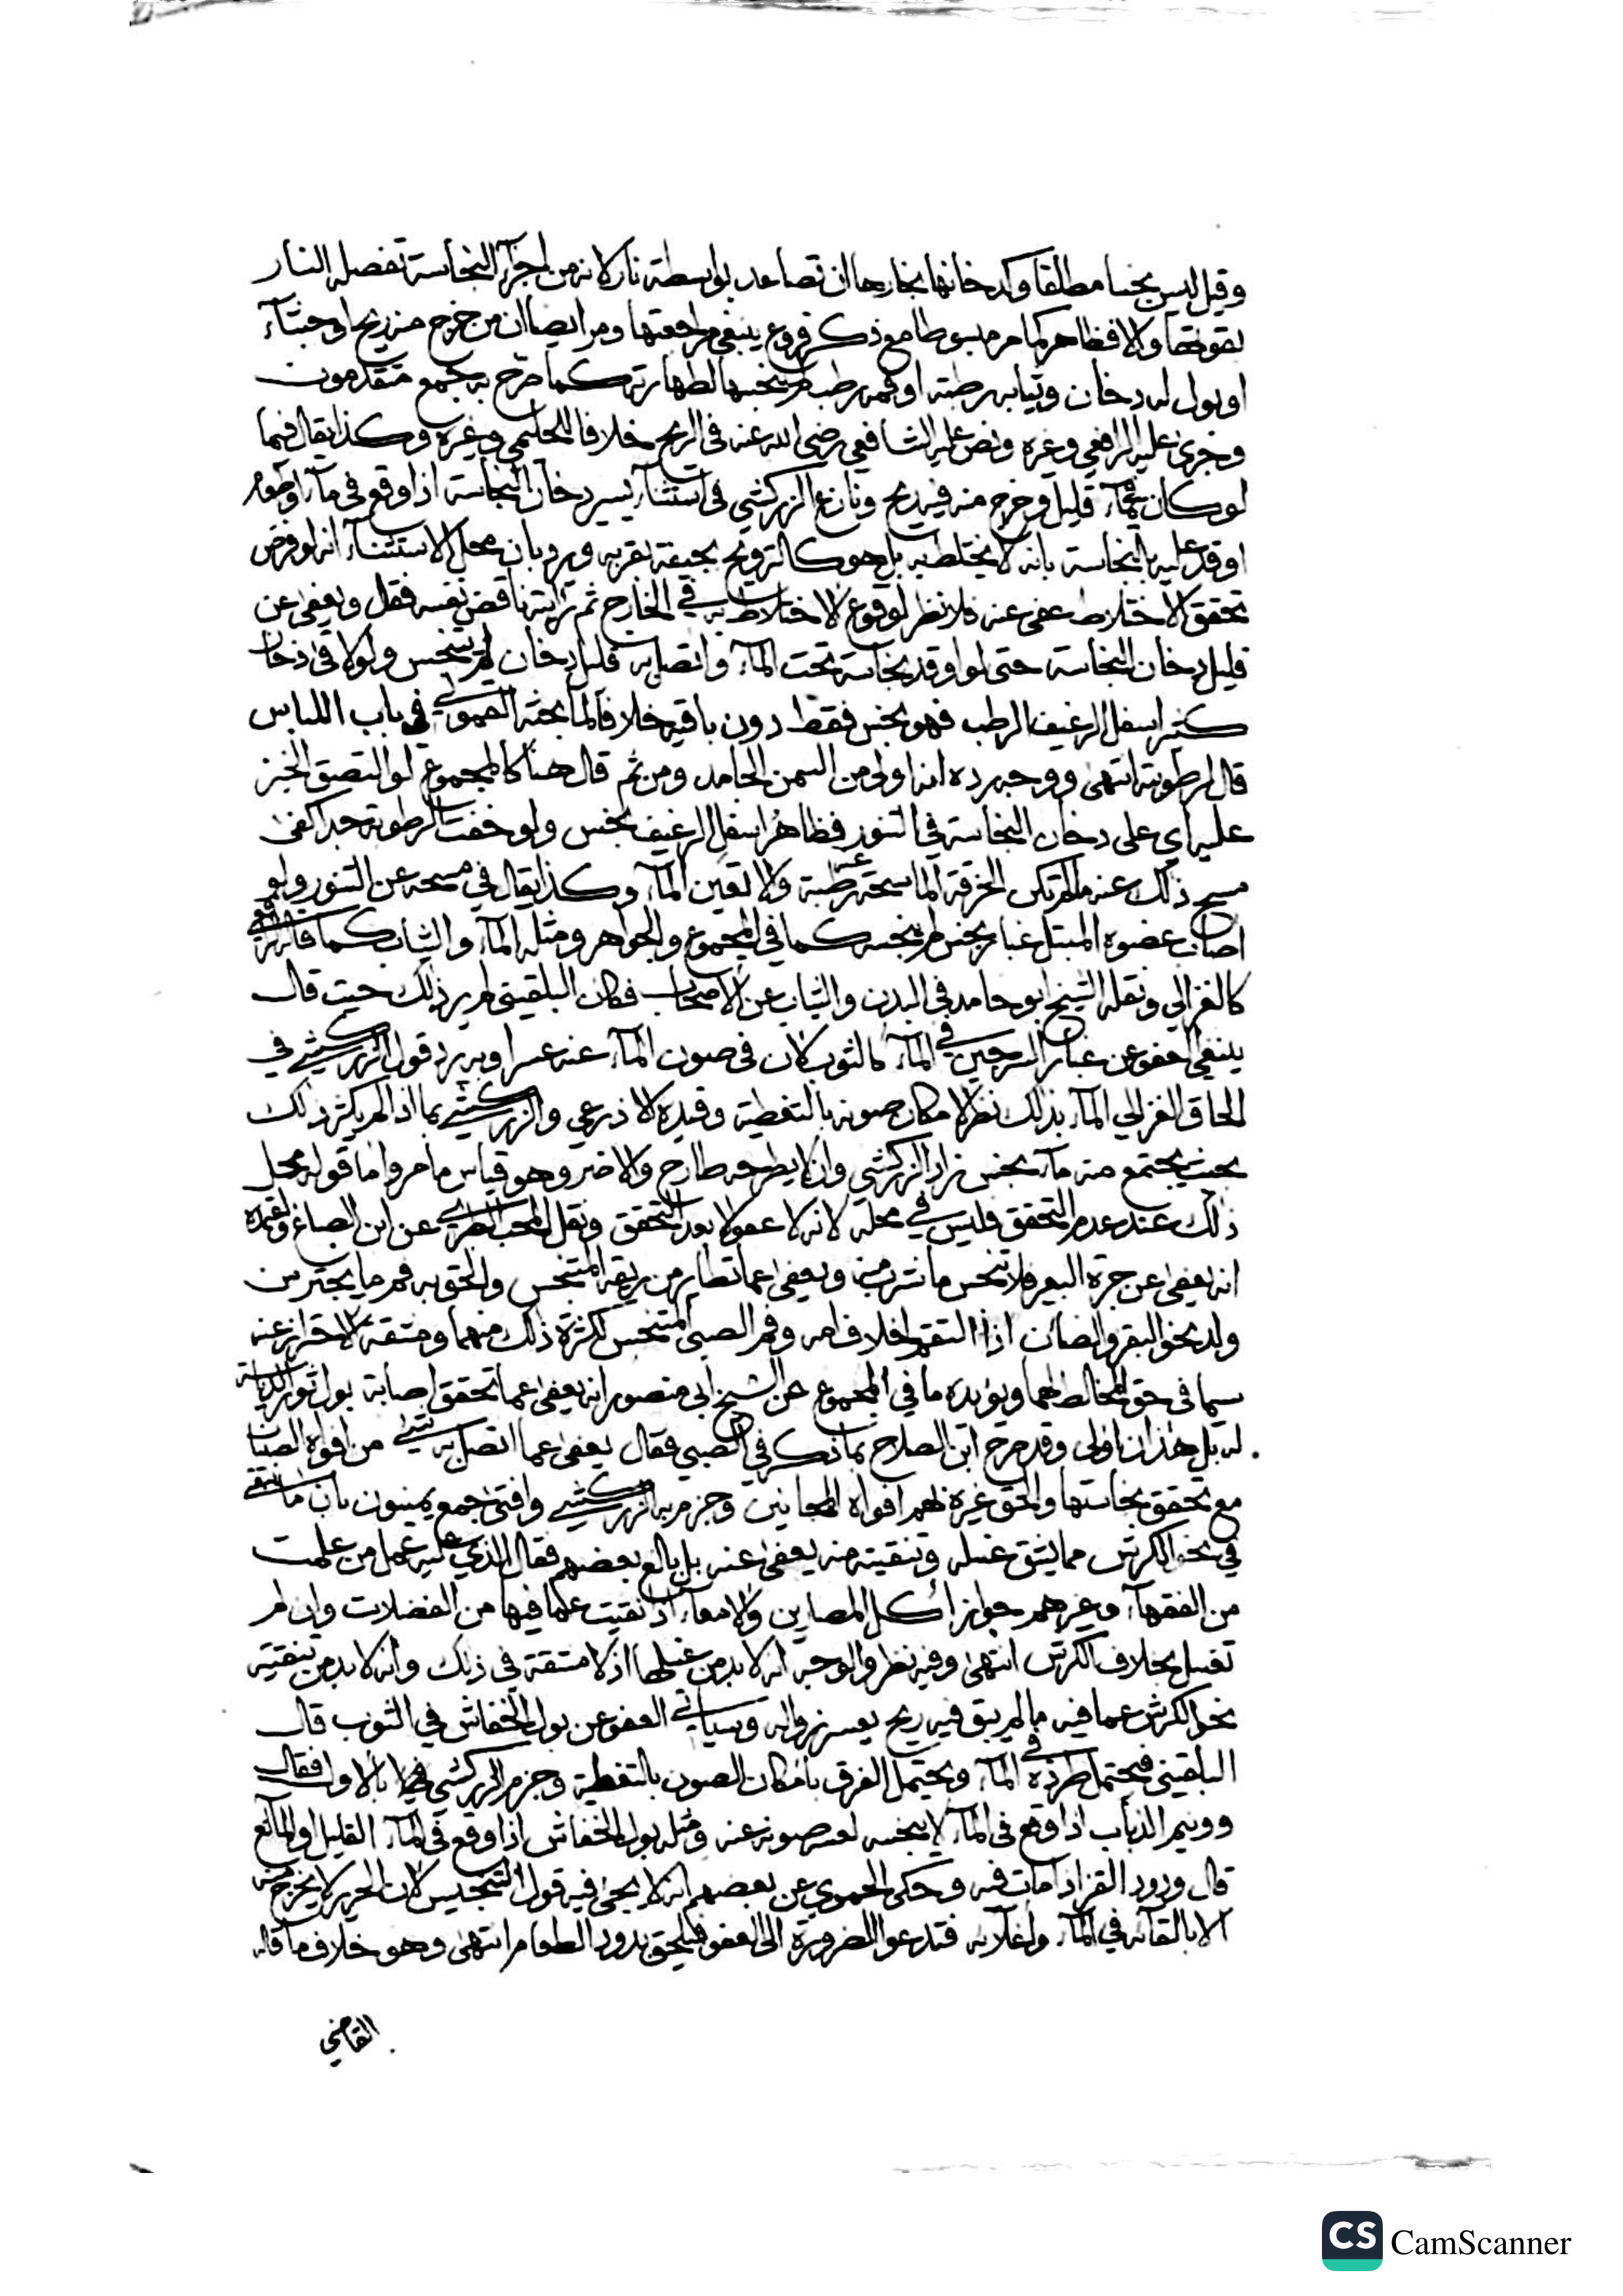 وقيل ليس نجسا مطلقا وكدخانها بخارها ان تصاعد بواسطة نار لانه من اجزآء النجاسة تفصله النار
بقوتها والا فطاهر كما مر مبسوطا مع ذكر فروع ينبغي مراجعتها ومر ايضا ان من خرج منه ريح او جشآء
او بول له دخان وثيابه رطبة او فمه رطب لم ينجسها لطهارته كما صرح به جمع متقدمون
وجرى عليه الرافعي وغيره ونص عليه الشافعي رضي الله عنه في الريح خلافا للحليمي وغيره وكذا يقال فيما
لو كان ثم مآء قليل وخرج منه فيه ريح ونازع الزركشي في استثنآء يسير دخان النجاسة اذا وقع في مآء او طهور
اوقد عليه بالنجاسة بانه لا يختلط به بل هو كالتروح بجيفة بقربه ويرد بان محل الاستثنآء انه لو فرض
تحقق الاختلاط عفي عنه فلا نظر لوقوع الاختلاط به في الخارج ثم رايته ناقض نفسه فقل ويعفى عن
قليل دخان النجاسة حتى لو اوقد نجاسة تحت المآء واتصل به قليل دخان لم ينجس ولو لاقى دخان
كثير اسفل الرغيف الرطب فهو نجس فقط دون باقيه خلافا لما بحثه القمولي في باب اللباس
قال لرطوبته انتهى ووجه رده انه اولى من السمن الجامد ومن ثم قال هنا كالمجموع لو التصق الخبز
عليه اي على دخان النجاسة في التنور فظاهر اسفل الرغيف نجس ولو خفت الرطوبة جدا كفى
مسح ذلك عنه ما لم تكن الخرقة الماسحة رطبة والا تعين المآء وكذا يقال في مسحه عن التنور ولو
اصاب عضوه المبتل غبار نجس لم ينجسه كما في المجموع والجواهر ومثله المآء والثياب كما قاله الرافعي
كالغزالي ونقله الشيخ ابو حامد في البدن والثياب عن الاصحاب فكان البلقيني لم ير ذلك حيث قال
ينبغي العفو عن غبار السرجين في المآء كالثوب لان في صون المآء عنه عسرا وبه يرد قول الزركشي في
الحاق الغزالي المآء بذلك نظر لامكان صونه بالتغطية وقيده الاذرعي والزركشي بما اذا لم يكثر ذلك
بحيث يجتمع منه مآء نجس زاد الزركشي وان لا يطرحه طارح والا ضر وهو قياس ما مر واما قوله محل
ذلك عند عدم التحقق فليس في محله لانه لا عفو الا بعد التحقق ونقل المحب الطبري عن ابن الصباغ واعتمده
انه يعفى عن جرة البعير فلا تنجس ما شرب منه ويعفى عما تطاير من ريقه المتنجس والحق به فم ما يجتر من
ولد نحو البقر والضان اذا التقم اخلاف امه وفم الصبي المتنجس لكثرة ذلك منهما ومشقة الاحتراز عنه
سيما في حق المخالط لهما ويؤيده ما في المجموع عن الشيخ ابي منصور انه يعفى عما تحقق اصابة بول ثور الدياسة
له بل هذان اولى وقد صرح ابن الصلاح بما ذكر في الصبي فقال يعفى عما اتصل به شيء من افواه الصبيان
مع تحقق نجاستها والحق غيره لهم افواه المجانين وجزم به الزركشي وافتى جمع يمنيون بان ما بقي
في نحو الكرش مما يشق غسله وتنقيته منه يعفى عنه بل بالغ بعضهم فقال الذي عليه عمل من علمت
من الفقهآء وغيرهم جواز اكل المصارين والامعاء اذا نقيت عما فيها من الفضلات وان لم
تغسل بخلاف الكرش انتهى وفيه نظر والوجه انه لا بد من غسلها اذ لا مشقة في ذلك وانه لا بد من تنقيته
نحو الكرش عما فيه ما لم يبق فيه ريح يعسر زواله وسياتي العفو عن بول الخفاش في الثوب قال
البلقيني فيحتمل طرده في المآء ويحتمل الفرق بامكان الصون بالتغطية وجزم الزركشي فيها بالاول فقال
وونيم الذباب اذا وقع في المآء لا ينجسه لعسر صونه عنه ومثله بول الخفاش اذا وقع في المآء القليل او المآئع
قال ودود القز اذا مات فيه وحكى الحموي عن بعضهم انه لا يجئ فيه قول التنجيس لان الحرير لا يخرج منه
الا بالقآئه في المآء واغلآئه فتدعو الضرورة الى العفو فيلحق بدود الطعام انتهى وهو خلاف ما قاله
القاضي
CS CamScanner